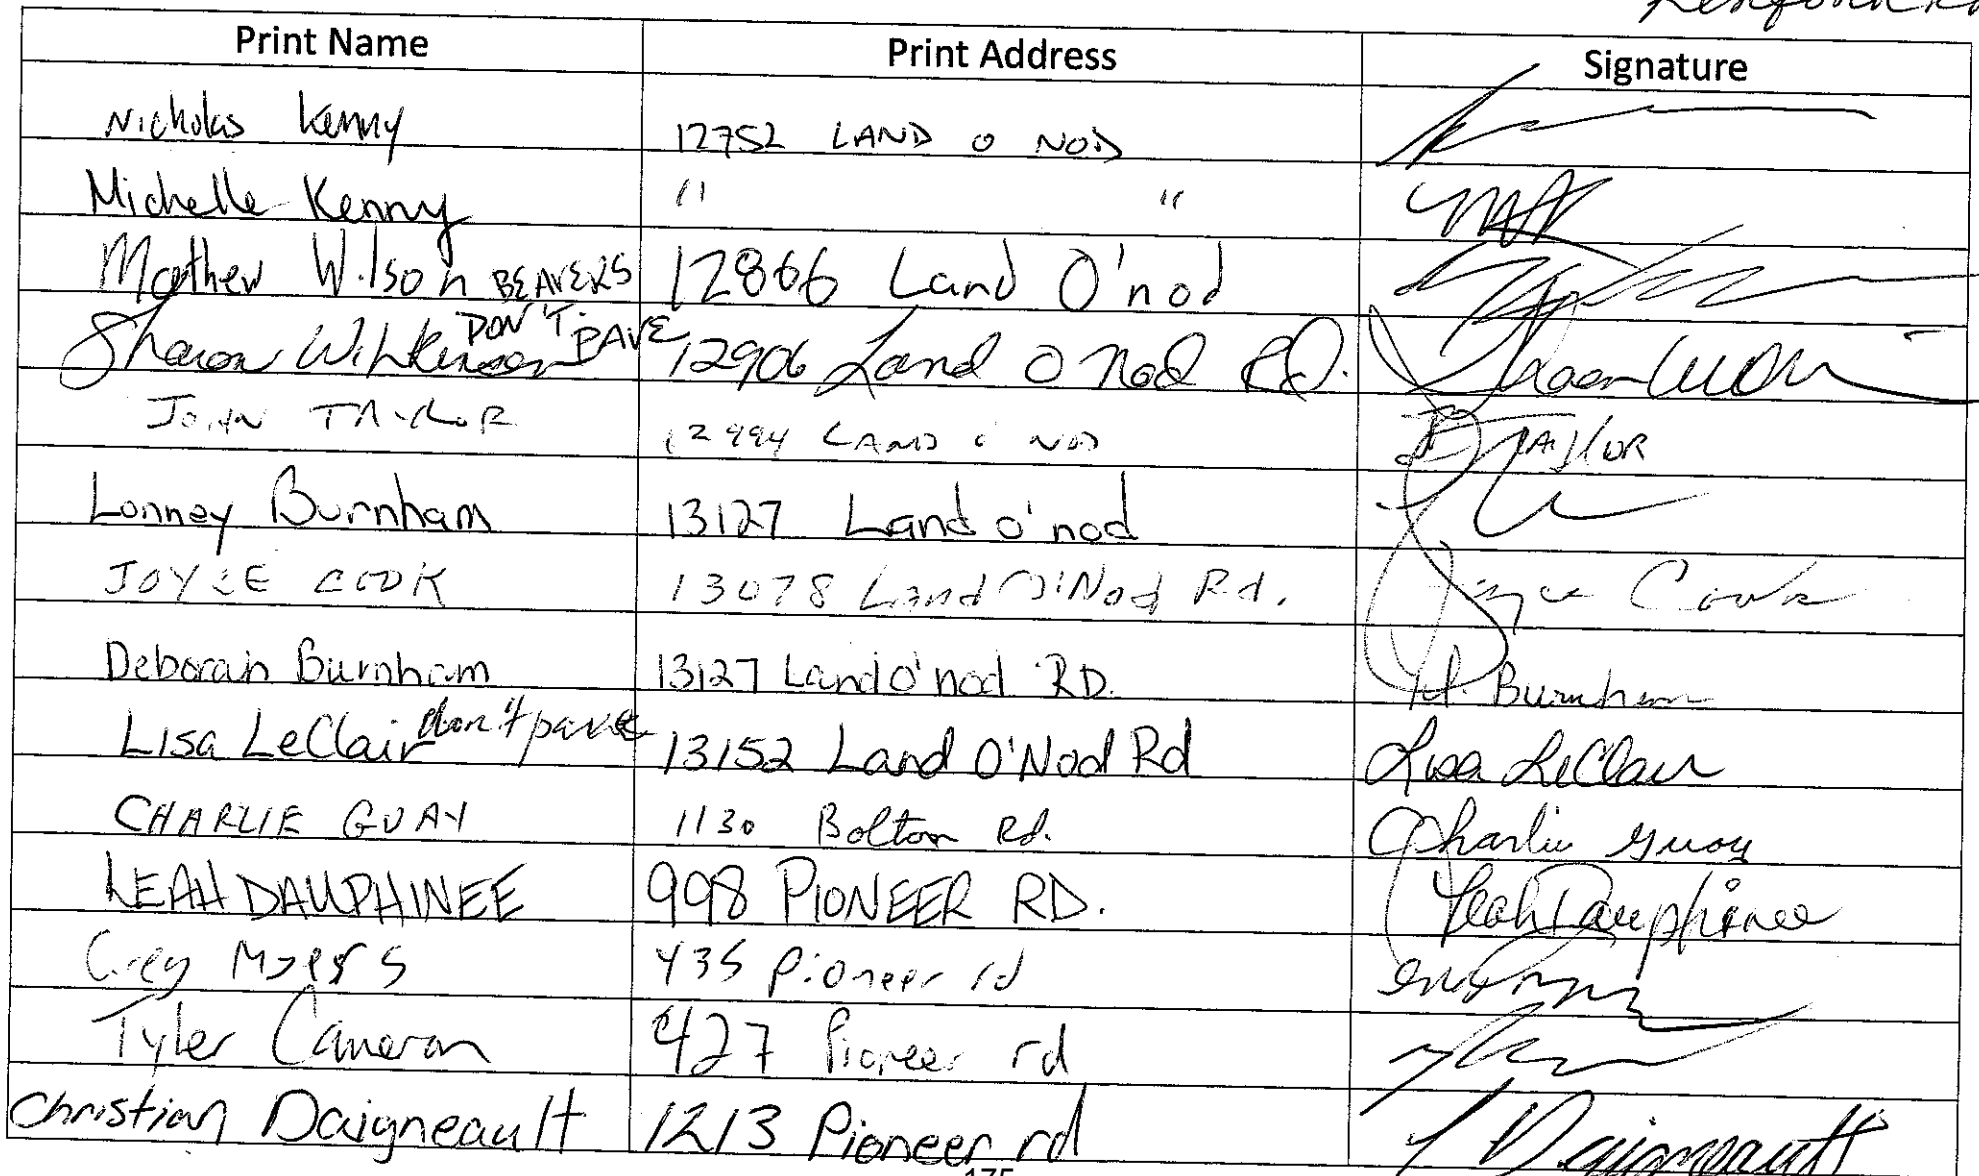 Print Name Print Address Signature
Nicholas Kenny 12752 LAND O NOD
Michelle Kenny " "
Matthew Wilson BEAVERS 12866 Land O'nod
Sharon Wilkinson DON'T PAVE 12906 Land O Nod Rd.
JOHN TAYLOR 12994 LAND O NOD J TAYLOR
Lonney Burnham 13127 Land o'nod
JOYCE COOK 13078 Land O'Nod Rd. Joyce Cook
Deborah Burnham 13127 Land O'nod RD. Burnham
Lisa LeClair don't pave 13152 Land O'Nod Rd Lisa LeClair
CHARLIE GUAY 1130 Bolton Rd. Charlie Guay
LEAH DAUPHINEE 998 PIONEER RD. Leah Dauphinee
Greg Myers 435 Pioneer rd
Tyler Cameron 427 Pioneer rd
Christian Daigneault 1213 Pioneer rd Daigneault
175